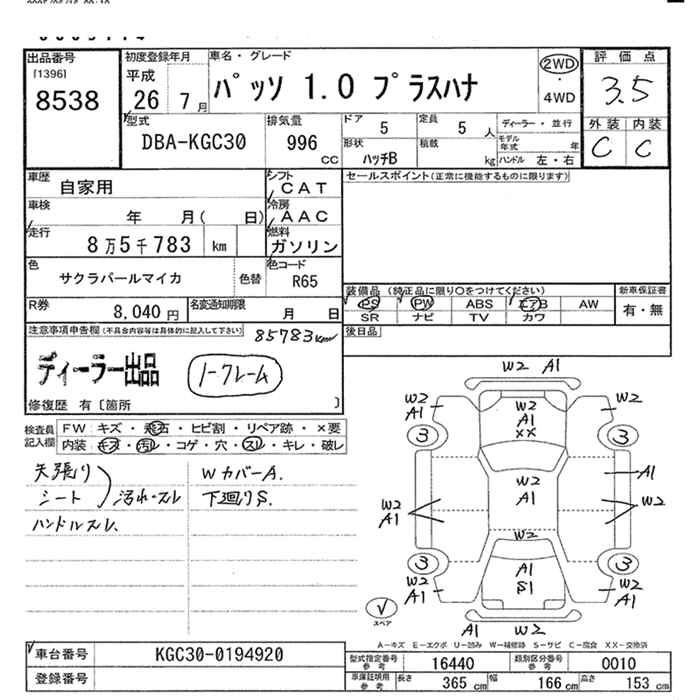 出品番号
[1396]
8538
初度登録年月
平成
26 7月
車名・グレード
パッソ 1.0 プラスハナ
2WD
・
4WD
評価点
3.5
外装 内装
C C
型式
DBA-KGC30
排気量
996
cc
ドア 5
定員 5 人
ディーラー・並行
形状
ハッチB
積載 kg
モデル年式 年
ハンドル 左・右
車歴
自家用
シフト
CAT
車検
年 月( 日)
冷房
AAC
走行
8万5千783 km
燃料
ガソリン
色
サクラパールマイカ
色替
色コード
R65
R券
8,040 円
名変通知期限
月 日
セールスポイント(正常に機能するものに限ります)
装備品 (純正品に限り○をつけてください)
PS PW ABS エアB AW
SR ナビ TV カワ
新車保証書
有・無
後日品
注意事項申告欄(不具合内容等は具体的に記入して下さい)
85783km
ディーラー出品
ノークレーム
修復歴 有〔箇所 〕
検査員記入欄
FW キズ・飛石・ヒビ割・リペア跡・×要
内装 キズ・汚れ・コゲ・穴・スレ・キレ・破レ
天張り
シート
汚れ・スレ
ハンドルスレ、
WカバーA.
下廻りS.
W2 A1
W2
A1
W2
A1
XX
W2
3
3
W2
A1
A1
W2
A1
W2
W2
3
3
W2
A1
A1
S1
W2
A1 W2
スペア
A−キズ E−エクボ U−凹み W−補修跡 S−サビ C−腐食 XX−交換済
車台番号
KGC30-0194920
登録番号
型式指定番号
参考
16440
類別区分番号
参考
0010
車庫証明用
参考
長さ 365 cm
幅 166 cm
高さ 153 cm